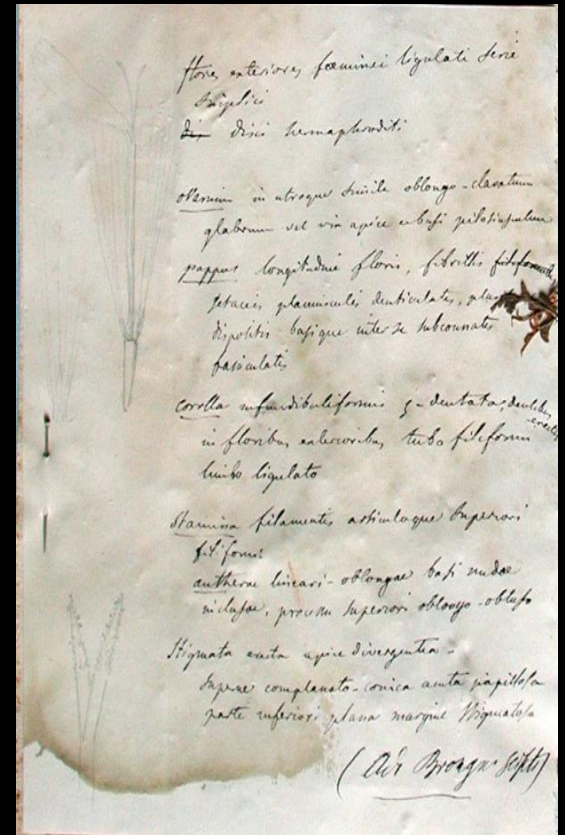 flores exteriores fœminei ligulati serie
simplici
dis disci hermaphroditi
ovarium in utroque simile oblongo-clavatum
glabrum vel vix apice e basi
pappus longitudine floris, fibrillis filiformib
setaceis planiusculis denticulatis,
dispositis basique inter se subconnatis
fasiculatis
corolla infundibuliformis 5-dentata, dentibus
erectis
in floribus exterioribus tubo filiformi
limbo ligulato
Stamina filamentis articuloque superiori
filiformi
antherae lineari-oblongae basi nudae
inclusae, processu superiori oblongo-obtuso
Stigmata exerta apice divergentia -
superne complanato-conica acuta papillosa
parte inferiori plana margine stigmatosa
(Ad. Brongn. scripsit)